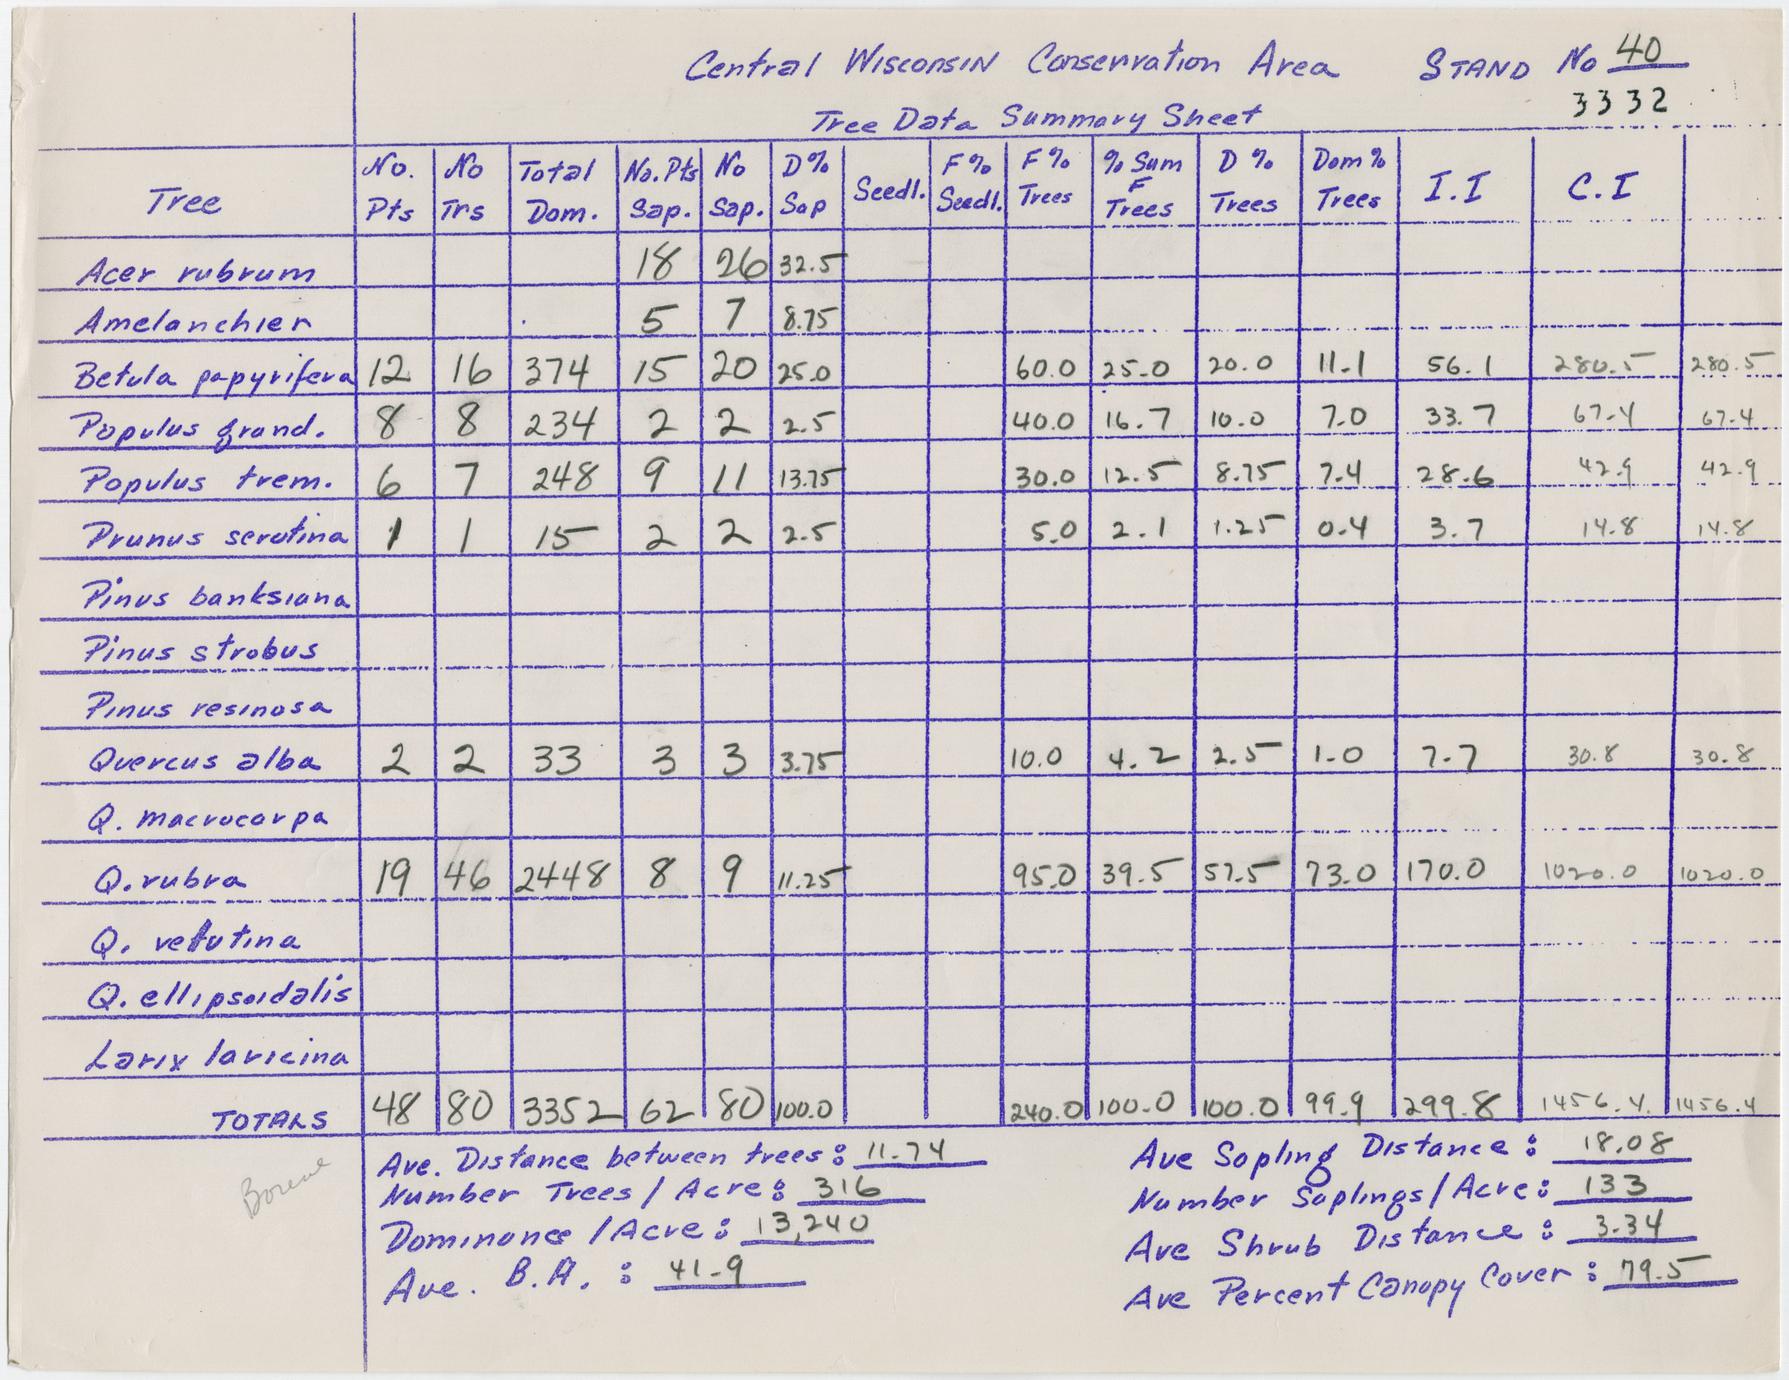 Central Wisconsin Conservation Area STAND No 40
3332
Tree Data Summary Sheet
Tree No. Pts No Trs Total Dom. No. Pts Sap. No Sap. D% Sap Seedl. F% Seedl. F% Trees % Sum F Trees D % Trees Dom % Trees I.I C.I
Acer rubrum 18 26 32.5
Amelanchier 5 7 8.75
Betula papyrifera 12 16 374 15 20 25.0 60.0 25.0 20.0 11.1 56.1 280.5 280.5
Populus grand. 8 8 234 2 2 2.5 40.0 16.7 10.0 7.0 33.7 67.4 67.4
Populus trem. 6 7 248 9 11 13.75 30.0 12.5 8.75 7.4 28.6 42.9 42.9
Prunus serotina 1 1 15 2 2 2.5 5.0 2.1 1.25 0.4 3.7 14.8 14.8
Pinus banksiana
Pinus strobus
Pinus resinosa
Quercus alba 2 2 33 3 3 3.75 10.0 4.2 2.5 1.0 7.7 30.8 30.8
Q. macrocarpa
Q. rubra 19 46 2448 8 9 11.25 95.0 39.5 57.5 73.0 170.0 1020.0 1020.0
Q. velutina
Q. ellipsoidalis
Larix laricina
TOTALS 48 80 3352 62 80 100.0 240.0 100.0 100.0 99.9 299.8 1456.4 1456.4
Ave. Distance between trees: 11.74
Number Trees / Acre: 316
Dominance / Acre: 13,240
Ave. B.A. : 41.9
Ave Sapling Distance: 18.08
Number Saplings / Acre: 133
Ave Shrub Distance: 3.34
Ave Percent Canopy Cover: 79.5